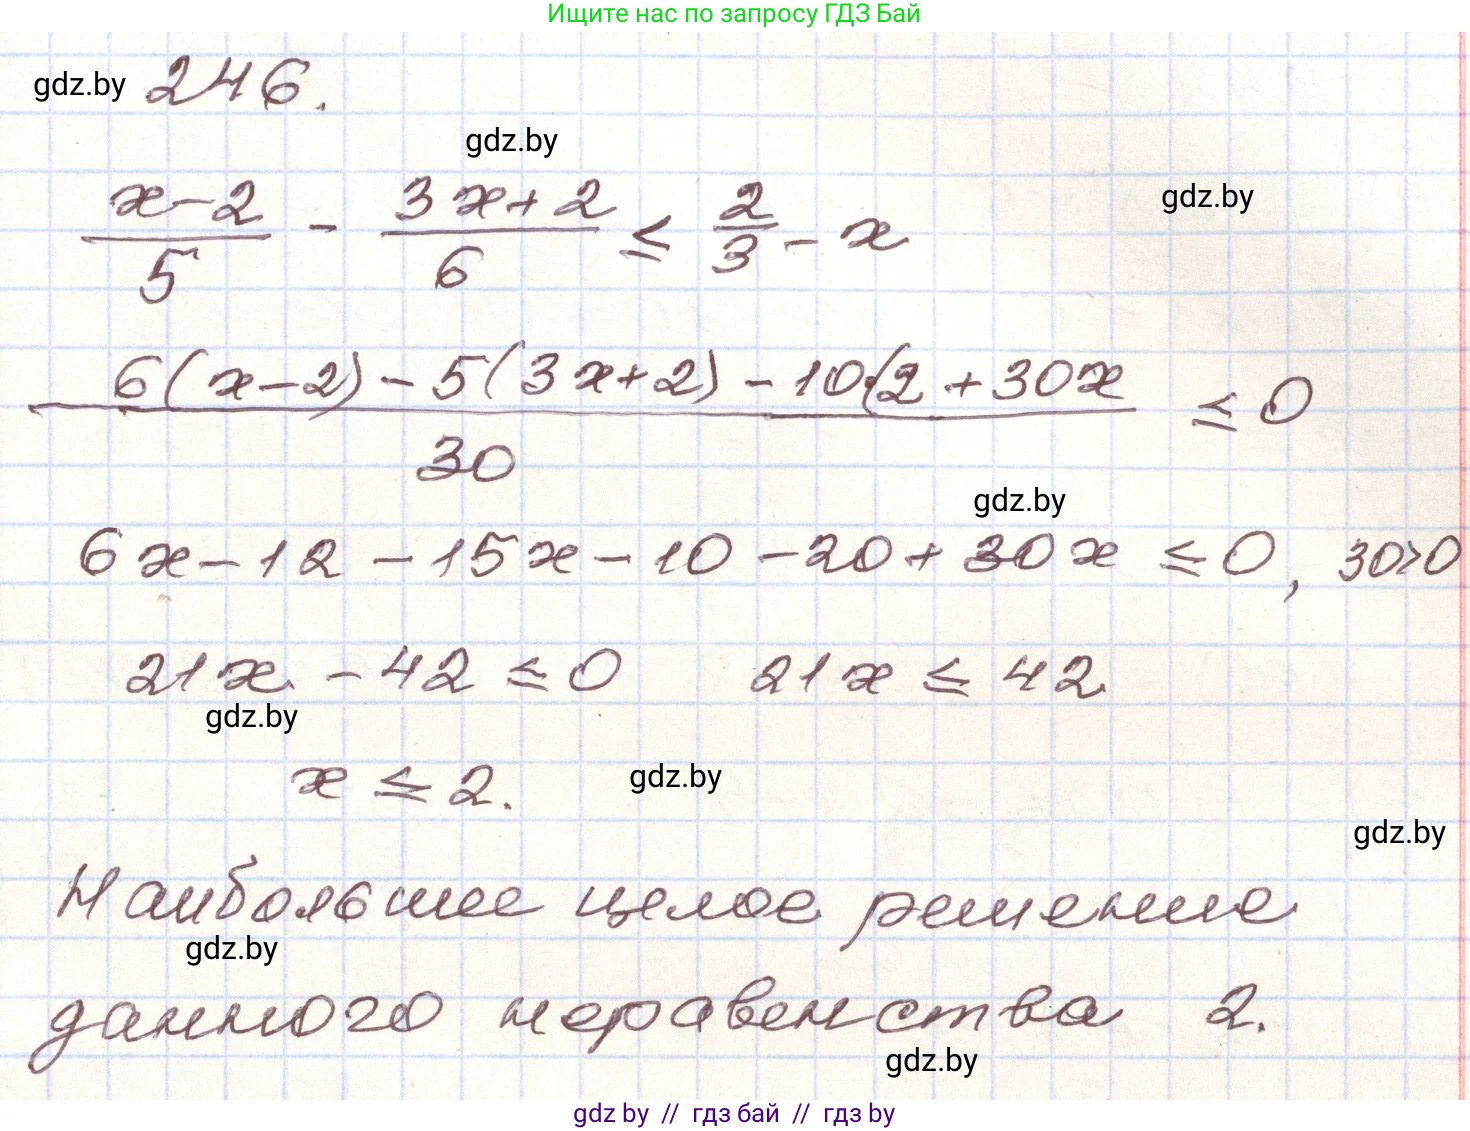 Ищите нас по запросу ГДЗ Бай
gdz.by 246.
gdz.by
gdz.by
(x-2)/5 - (3x+2)/6 ≤ 2/3 - x
(6(x-2) - 5(3x+2) - 10·2 + 30x)/30 ≤ 0
gdz.by
6x - 12 - 15x - 10 - 20 + 30x ≤ 0, 30>0
21x - 42 ≤ 0 21x ≤ 42
gdz.by
x ≤ 2.
gdz.by
gdz.by
Наибольшее целое решение
gdz.by
данного неравенства 2.
gdz.by
gdz by // гдз бай // гдз by